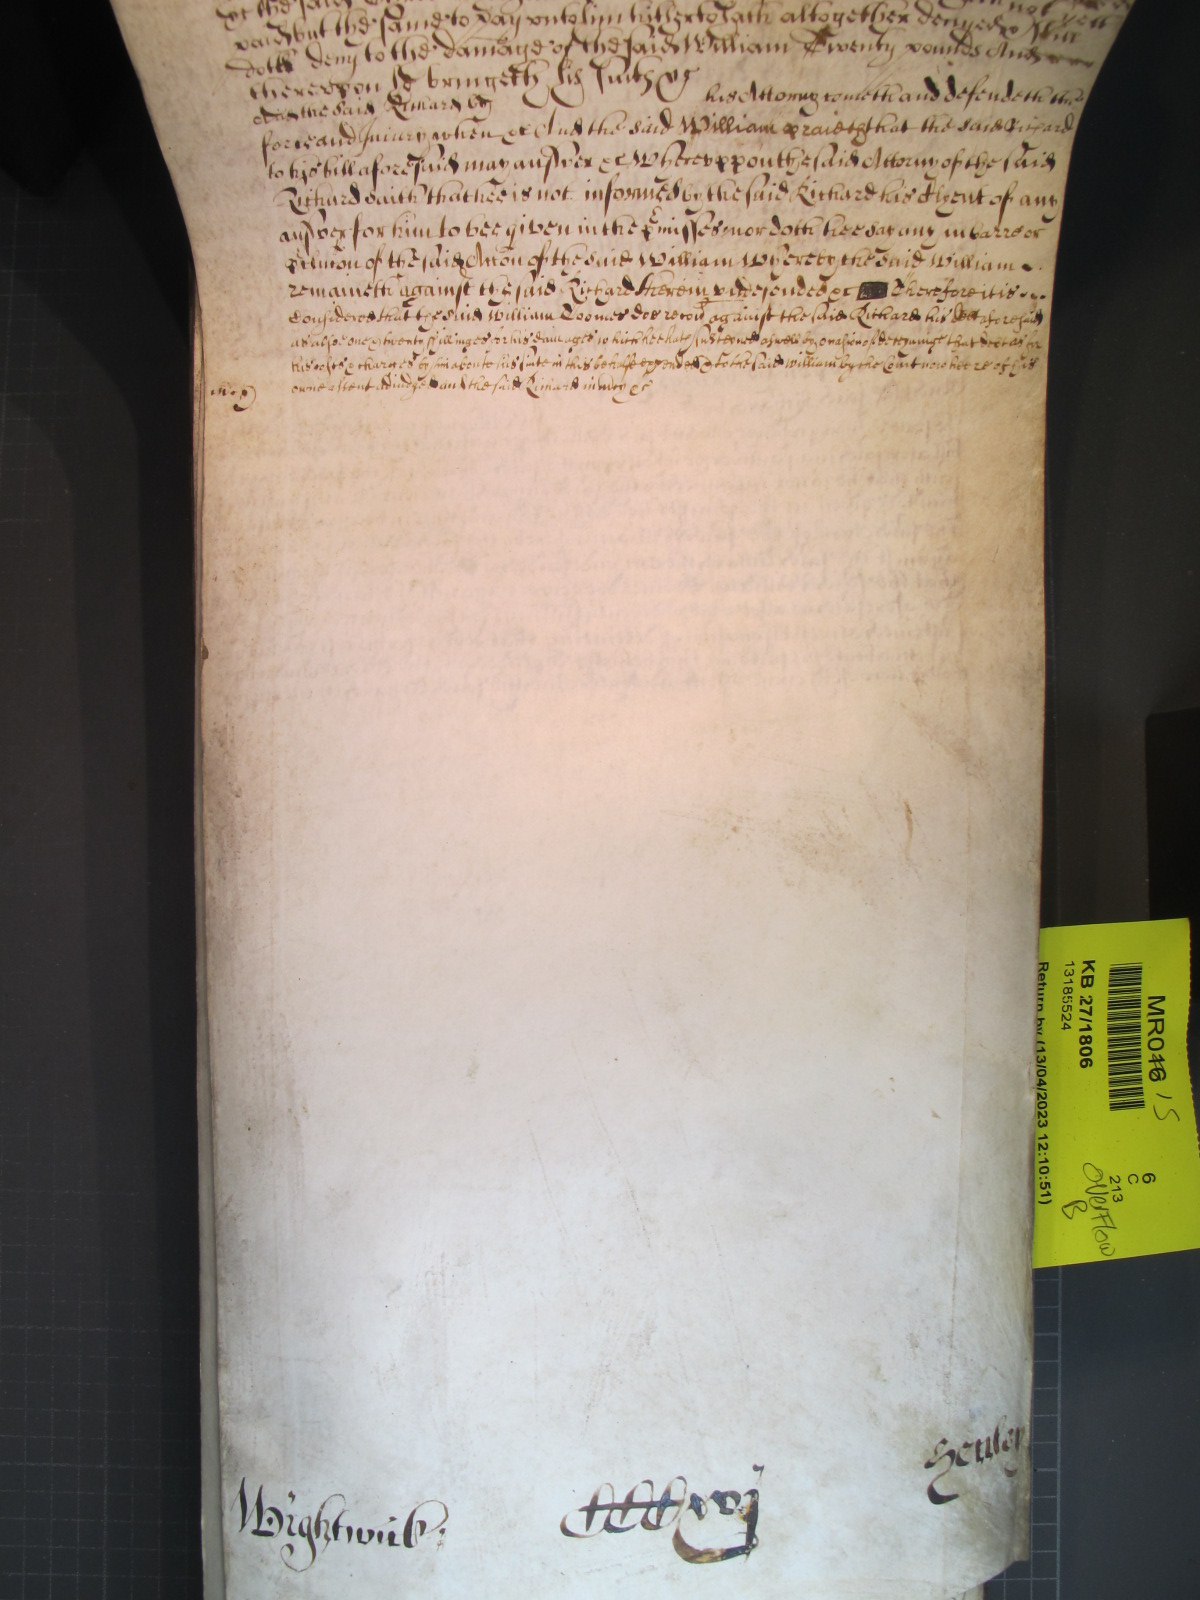 paid but the same to pay unto him hitherto hath altogether denyed & still
doth deny to the damage of the said William Twenty pounds And
thereupon he bringeth his suite &c
And the said Richard by his Attorny cometh and defendeth the
force and Injury when &c And the said William praieth that the said Richard
to his bill aforesaid may answer &c Whereuppon the said Attorny of the said
Richard saith that hee is not informed by the said Richard his Clyent of any
answer for him to bee given in the p̱misses nor doth hee say any in barre or
p̱clusion of the said Accon of the said William Whereby the said William
remaineth against the said Richard therein undefended &c Therefore it is
Considered that the said William Coomes doe recovr against the said Richard his debt aforesaid
as alsoe one & twenty shillinges for his damages which hee hath susteyned aswell by occasion of deteyninge that debt as for
his costes & charges by him aboute his suite in this behalfe expended to the said William by the Court now here of his
owne assent adiudged and the said Richard in mercy &c
Wightwick
CCCxvj
Henley
MR046 15
KB 27/1806
13185524
Return by (13/04/2023 12:10:51)
6
C
213
OVERFLOW
B